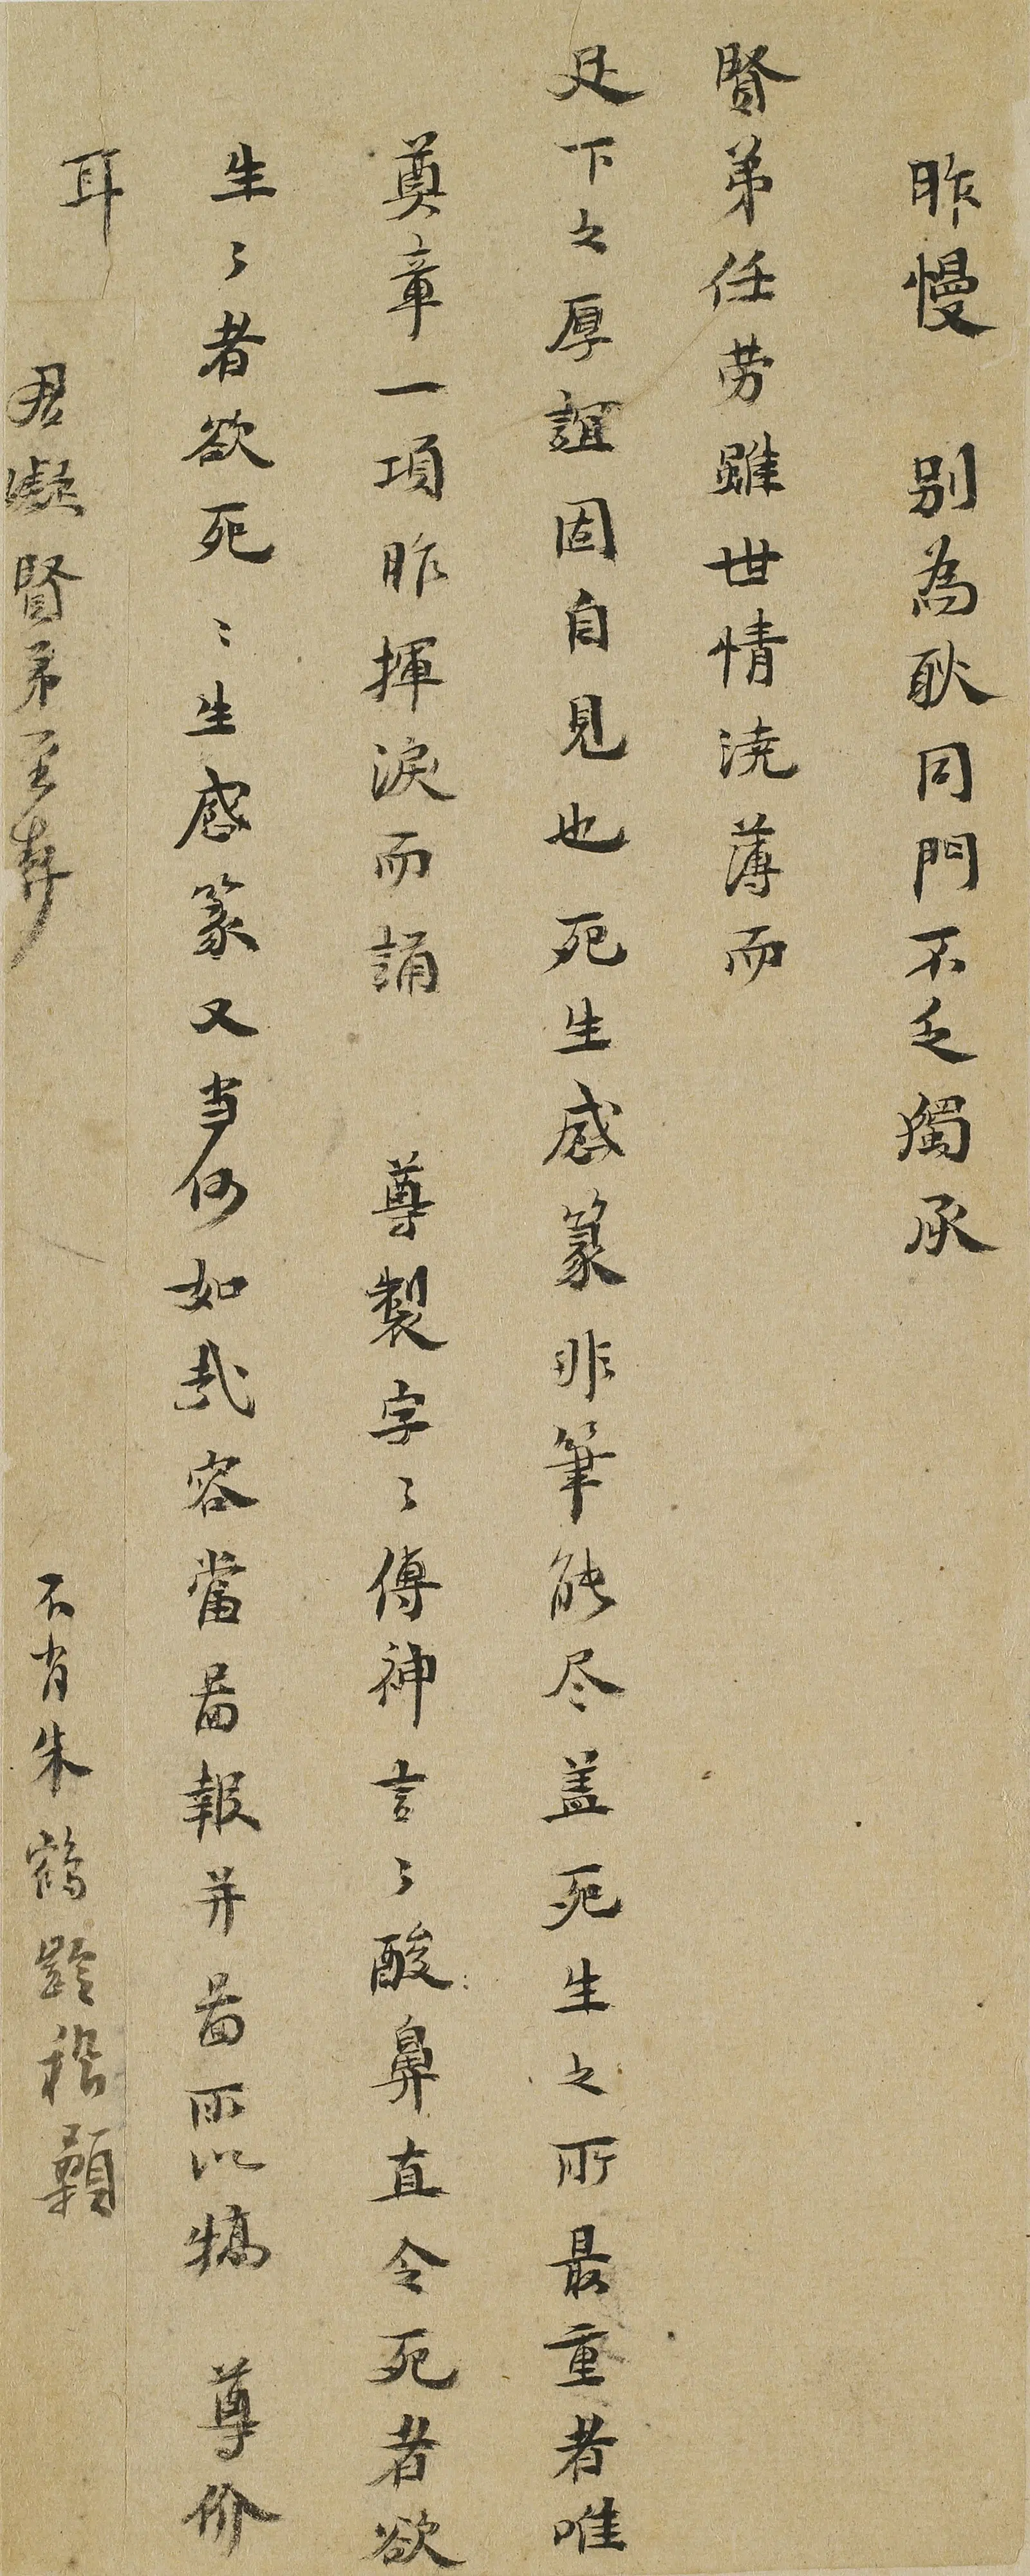 昨慢　別為耿同門不乏獨承
賢弟任劳雖世情澆薄而
足下之厚誼固自見也死生感篆非筆能尽盖死生之所最重者唯
奠章一項昨揮淚而誦　尊製字〻傳神言〻酸鼻直令死者欲
生〻者欲死〻生感篆又当何如哉容當啚報并啚所以犒　尊价
耳
君凝賢弟至契
不肖朱鶴齡稽顙